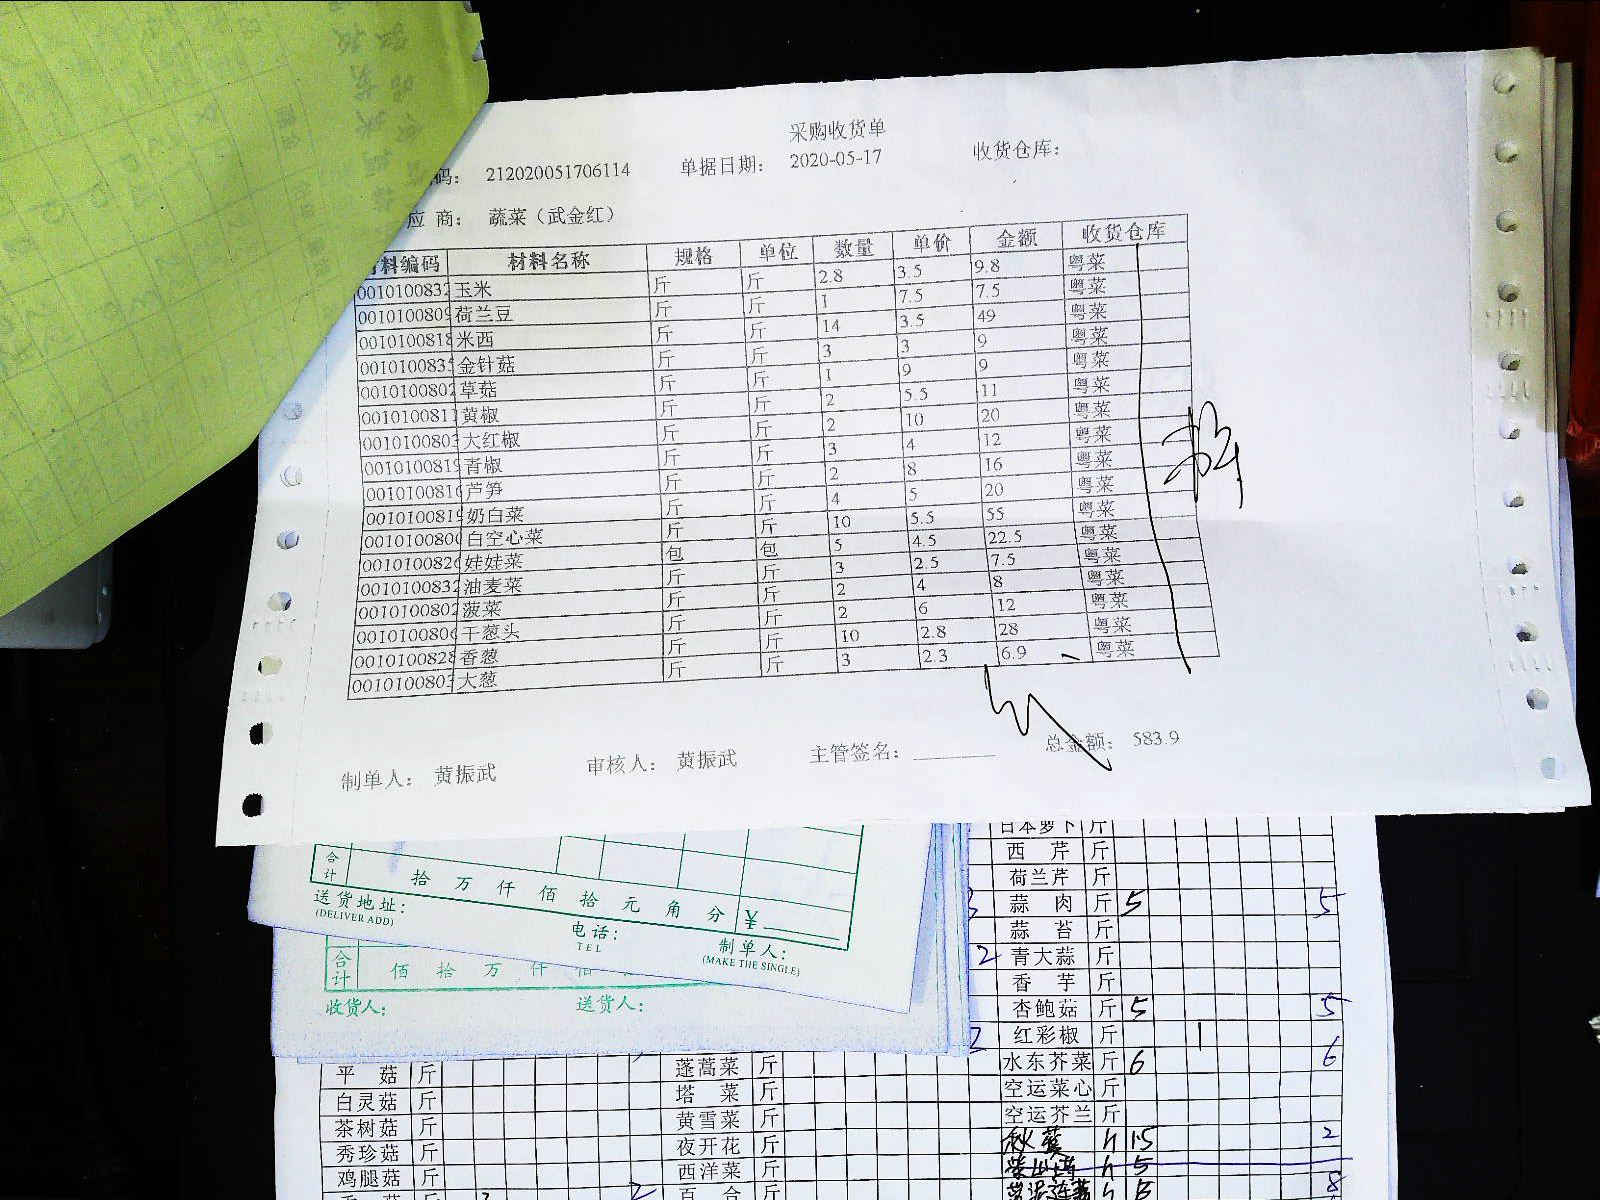 采购收货单
码： 212020051706114 单据日期： 2020-05-17 收货仓库：
应 商： 蔬菜（武金红）
料编码 材料名称 规格 单位 数量 单价 金额 收货仓库
001010083 玉米 斤 斤 2.8 3.5 9.8 粤菜
001010080 荷兰豆 斤 斤 1 7.5 7.5 粤菜
001010081 米西 斤 斤 14 3.5 49 粤菜
001010083 金针菇 斤 斤 3 3 9 粤菜
001010080 草菇 斤 斤 1 9 9 粤菜
001010081 黄椒 斤 斤 2 5.5 11 粤菜
001010080 大红椒 斤 斤 2 10 20 粤菜
001010081 青椒 斤 斤 3 4 12 粤菜
001010081 芦笋 斤 斤 2 8 16 粤菜
001010081 奶白菜 斤 斤 4 5 20 粤菜
001010080 白空心菜 斤 斤 10 5.5 55 粤菜
001010082 娃娃菜 包 包 5 4.5 22.5 粤菜
001010083 油麦菜 斤 斤 3 2.5 7.5 粤菜
001010080 菠菜 斤 斤 2 4 8 粤菜
001010080 干葱头 斤 斤 2 6 12 粤菜
001010082 香葱 斤 斤 10 2.8 28 粤菜
001010080 大葱 斤 斤 3 2.3 6.9 粤菜
制单人： 黄振武 审核人： 黄振武 主管签名： 总金额： 583.9
合计 拾 万 仟 佰 拾 元 角 分 ¥
送货地址：
(DELIVER ADD)
电话：
TEL
制单人：
(MAKE THE SINGLE)
合计 佰 拾 万 仟 佰
收货人： 送货人：
日本萝卜 斤
西 芹 斤
荷兰芹 斤
蒜 肉 斤 5 5
蒜 苔 斤
2 青大蒜 斤
香 芋 斤
杏鲍菇 斤 5 5
红彩椒 斤 1
平 菇 斤 蓬蒿菜 斤 水东芥菜 斤 6 6
白灵菇 斤 塔 菜 斤 空运菜心 斤
茶树菇 斤 黄雪菜 斤 空运芥兰 斤
秀珍菇 斤 夜开花 斤 1.5 2
鸡腿菇 斤 西洋菜 斤 5
百 合 斤 8